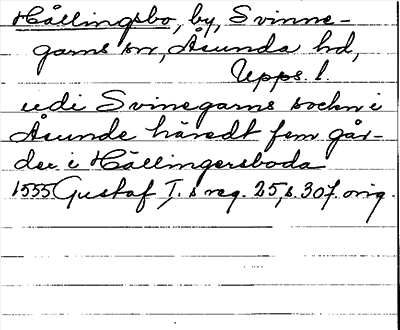 Hållingsbo, by, Svinne-
garns sn, Åsunda hd,
Upps. l.
udi Svinegarns sockn i
Åsunde häredt fem går-
der i Hållingersboda
1555 Gustaf I:s reg. 25, s. 307. orig.